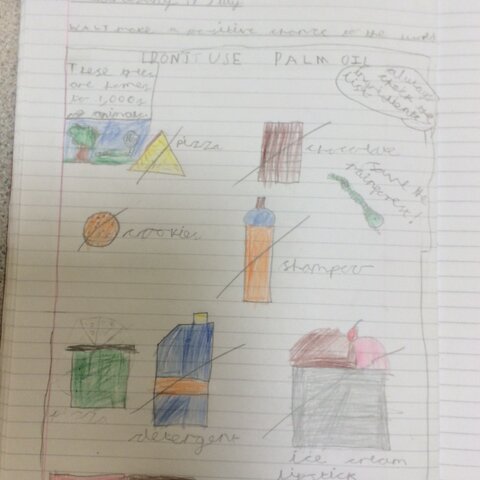 WALT make a positive change to the world
DON'T USE PALM OIL
These trees
are homes
to 1,000s
of animals
always
check the
pizza
chocolate
save the
rainforest!
cookies
shampoo
detergent
ice cream
lipstick